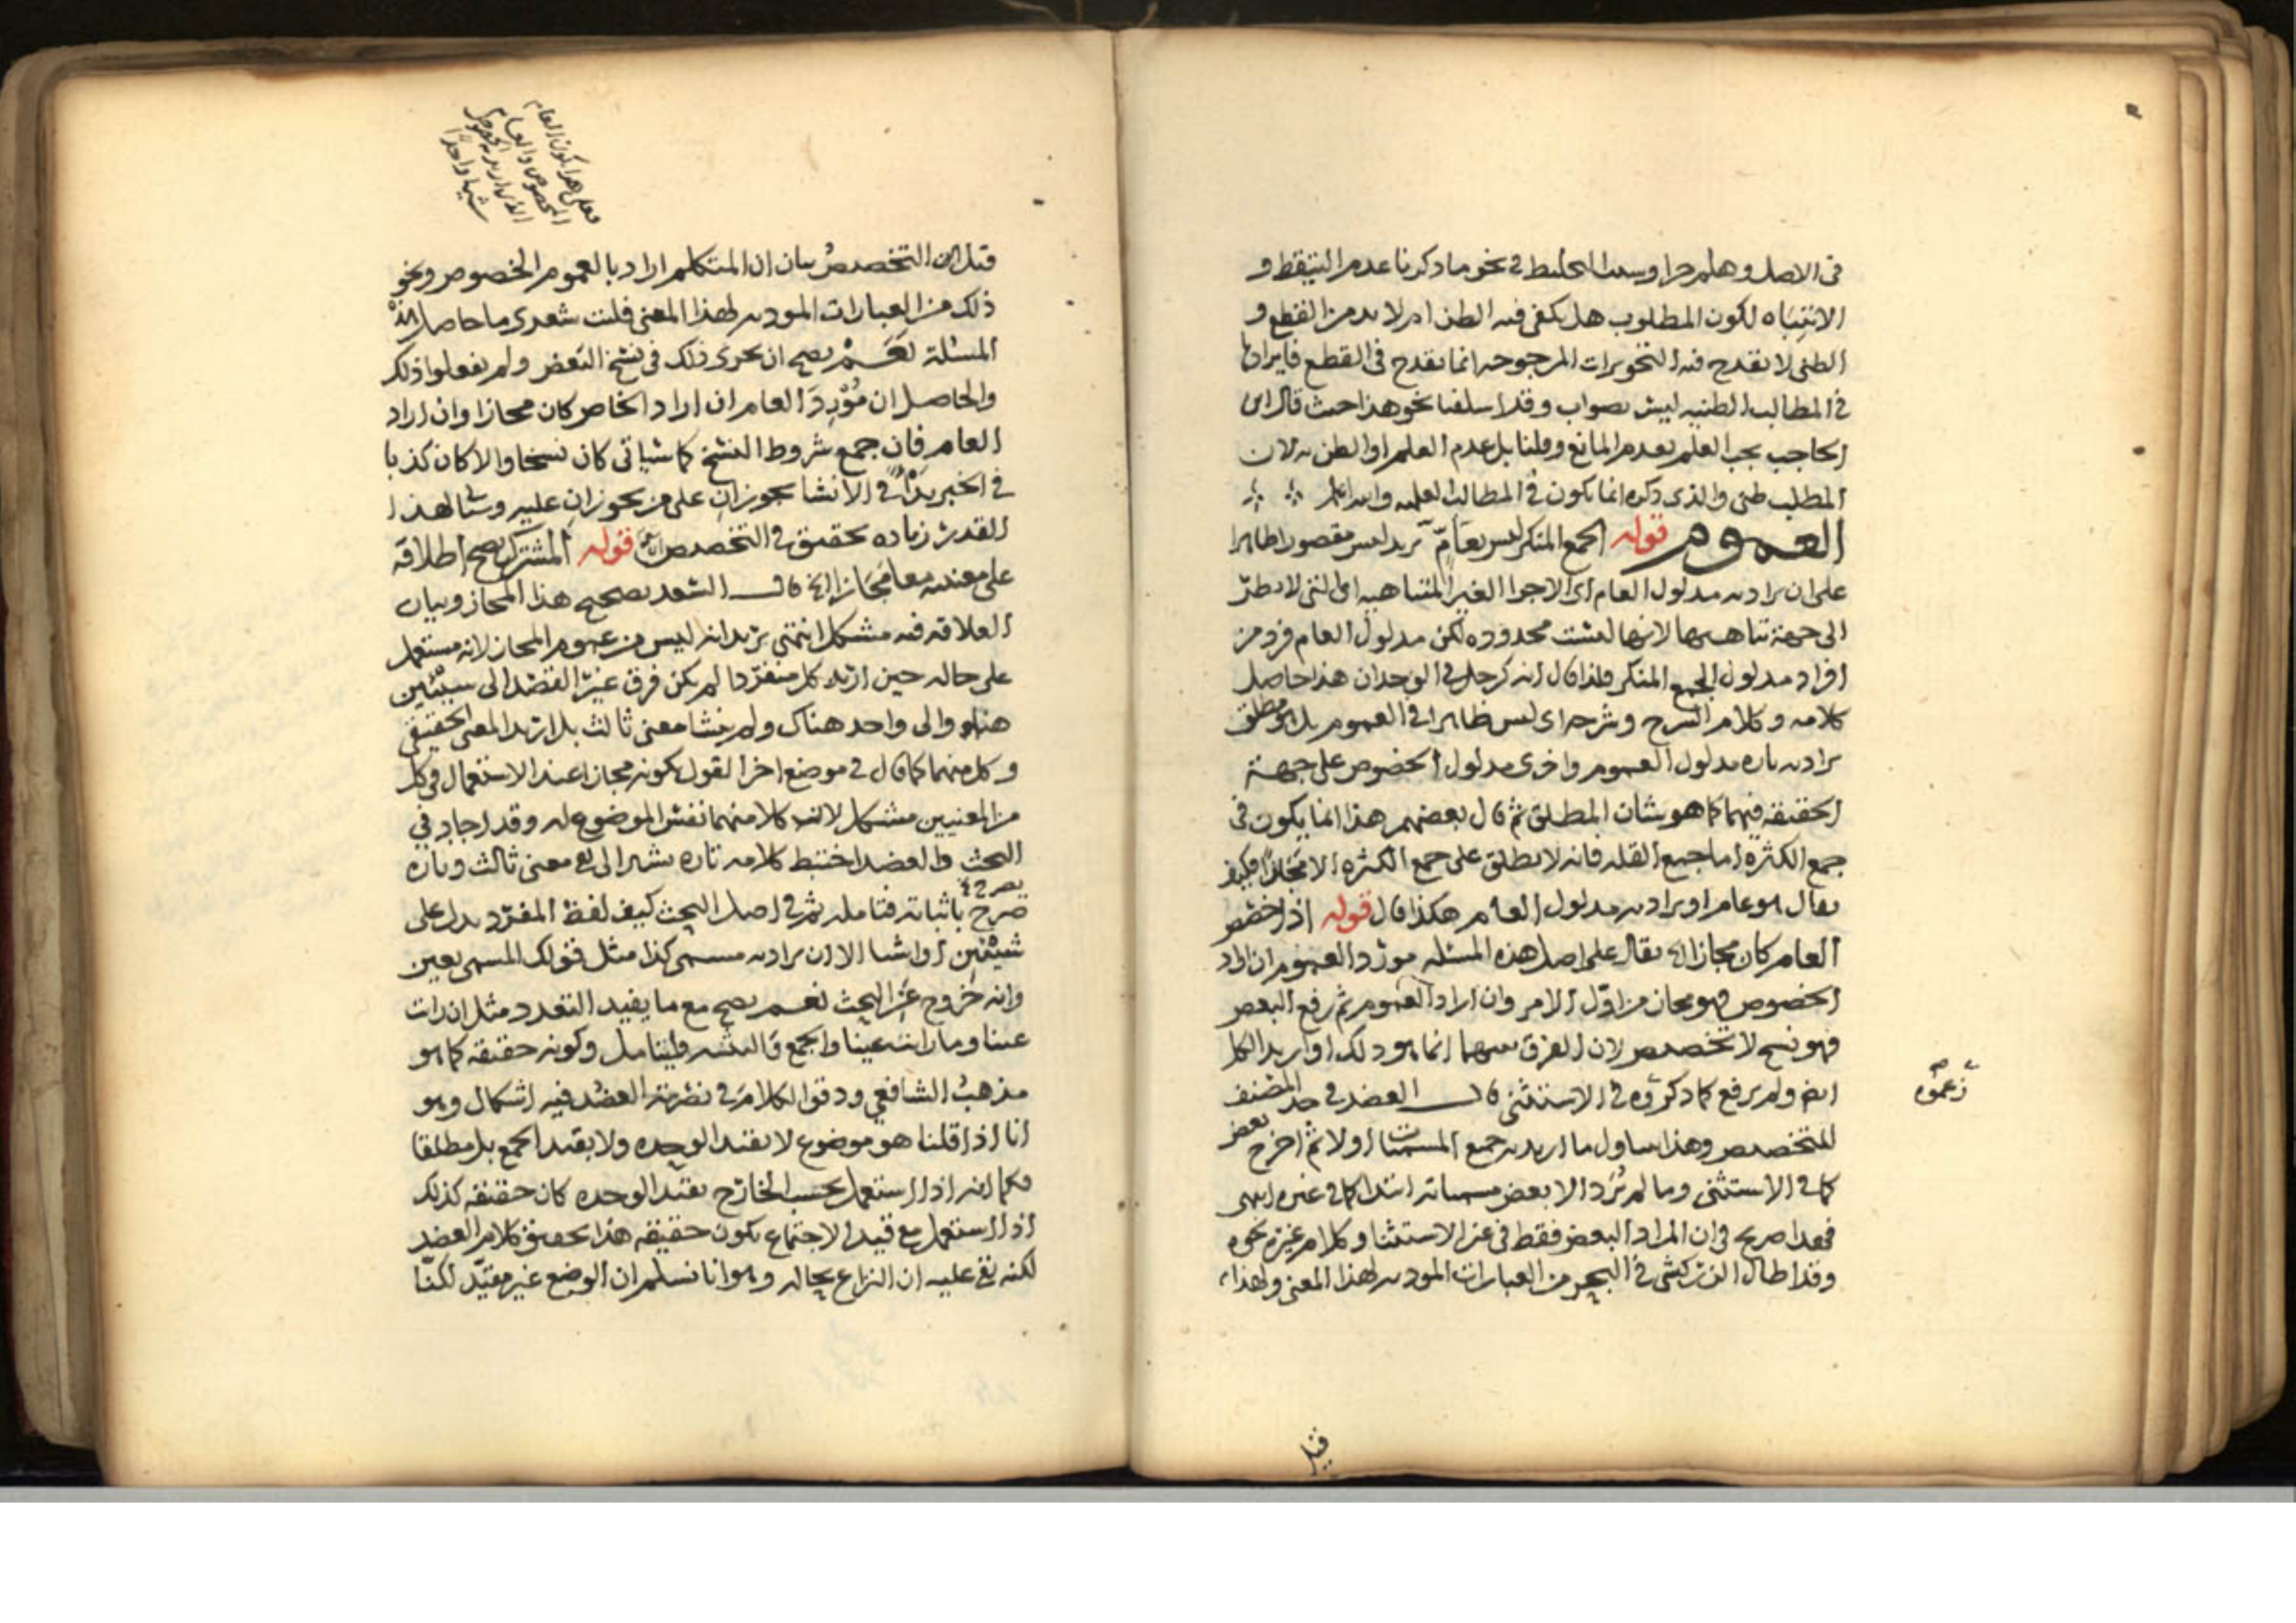 في الاصل وهلم جرا وسبب التخليط في نحو ما ذكرنا عدم التيقظ و
الانتباه لكون المطلوب هل يكفي فيه الظن ام لا بد من القطع و
الظني لا تقدح فيه التجويزات المرجوحة انما تقدح في القطع فايرادها
في المطالب الظنية ليس بصواب وقد اسلفنا نحو هذا حيث قال ابن
الحاجب يجب العلم بعدم المانع وقلنا بل عدم العلم او الظن به لان
المطلب ظني والذي ذكره انما يكون في المطالب العلمية والله اعلم
العموم قوله الجمع المنكر ليس بعام يريد ليس مقصورا ظاهرا
على ان يراد به مدلول العام اي الاجزا الغير المتناهية اي التي لا نظر
الى جهة تناهيها لانها ليست محدودة لكن مدلول العام فرد من
افراد مدلول الجمع المنكر فلذا قال انه كرجل في الوحدان هذا حاصل
كلامه وكلام الشرح وشرحه اي ليس ظاهرا في العموم بل هو مطلق
يراد به تارة مدلول العموم واخرى مدلول الخصوص على جهة
الحقيقة فيهما كما هو شان المطلق ثم قال بعضهم هذا انما يكون في
جمع الكثرة اما جمع القلة فانه لا يطلق على جمع الكثرة الا مجازا فكيف
يقال هو عام او يراد به مدلول العام هكذا قال قوله اذا خصص
العام كان مجازا الخ يقال على اصل هذه المسئلة مورد العموم ان اراد
الخصوص فهو مجاز من اول الامر وان اراد العموم ثم رفع البعض
فهو نسخ لا تخصيص لان الفرق بينهما انما هو ذلك او اريد الكل
ايضا ولم يرفع كما ذكروه في الاستثنى قال العضد في حد المصنف
زعموه
للتخصيص وهذا يتناول ما اريد به جميع المسميات اولا ثم اخرج بعض
كما في الاستثنى وما لم يُرد الا بعض مسمياته ابتداء كما في غيره انتهى
فهذا صريح في ان المراد البعض فقط في غير الاستثنا وكلام غيره نحوه
وقد اطال الزركشي في البحر من العبارات المودية لهذا المعنى ولهذا
قيل
فعلى هذا يكون العام
المخصوص والعام
الذي اريد به الخصوص
شيئا واحدا
قيل ان التخصيص بيان ان المتكلم اراد بالعموم الخصوص ونحو
ذلك من العبارات المودية لهذا المعنى فليت شعري ما حاصل هذه
المسئلة نعم يصح ان يجرى ذلك في نسخ البعض ولم يفعلوا ذلك
والحاصل ان مُورِد العام ان اراد الخاص كان مجازا وان اراد
العام فان جمع شروط النسخ كما سياتي كان نسخا والا كان كذبا
في الخبر بدًا في الانشا يجوزان على من يجوزان عليه وسياتي لهذا
القدر زيادة تحقيق في التخصيص قوله المشترك يصح اطلاقه
على معنييه معا مجازا الخ قال السعد تصحيح هذا المجاز وبيان
العلاقة فيه مشكل انتهى يريد انه ليس من عموم المجاز لانه مستعمل
على حاله حين اريد كل منفردا لم يكن فرق غير القصد الى شيئين
هنا والى واحد هناك ولم ينشا معنى ثالث بل اريد المعنى الحقيقي
وكل منهما كما قال في موضع اخر القول بكونه مجازا عند الاستعمال في كل
من المعنيين مشكل لان كلا منهما نفس الموضوع له وقد اجاد في
البحث والعضد اختبط كلامه تارة يشير الى معنى ثالث وتارة
صرح باثباته فتامله ثم في اصل البحث كيف لفظ المفرد يدل على
شيئين او اشيا الا ان يراد به مسمى كذا مثل قولك المسمى بعين
وانه خروج عن البحث نعم يصح مع ما يفيد التعدد مثل ان رات
عينا وما رايت عينا والجمع والتثنية فليتامل وكونه حقيقة كما هو
مذهب الشافعي ودقق الكلام في نصرته العضد فيه اشكال وهو
انا اذا قلنا هو موضوع لا بقيد الوحدة ولا بقيد الجمع بل مطلقا
فكما انه اذا استعمل بحسب الخارج بقيد الوحدة كان حقيقة كذلك
اذا استعمل مع قيد الاجتماع يكون حقيقة هذا تحقيق كلام العضد
لكنه بقي عليه ان النزاع بحاله وهو انا نسلم ان الوضع غير مقيد لكنا